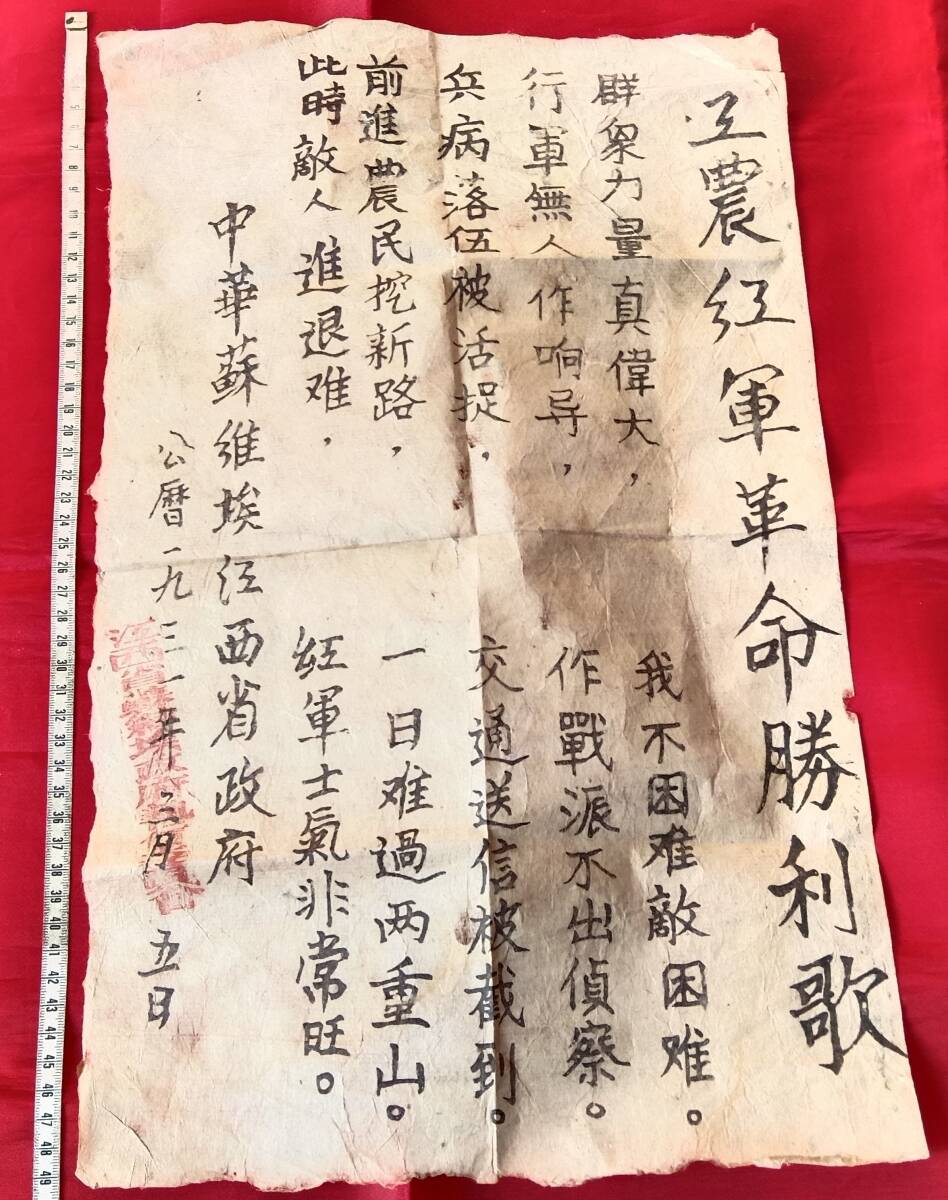 工農红軍革命勝利歌
群众力量真偉大，我不困难敵困难。
行軍無人作响导，作戰派不出偵察。
兵病落伍被活捉，交通送信被截到。
前進農民挖新路，一日难過两重山。
此時敵人進退难，红軍士氣非常旺。
中華蘇維埃江西省政府
公曆一九三一年三月五日